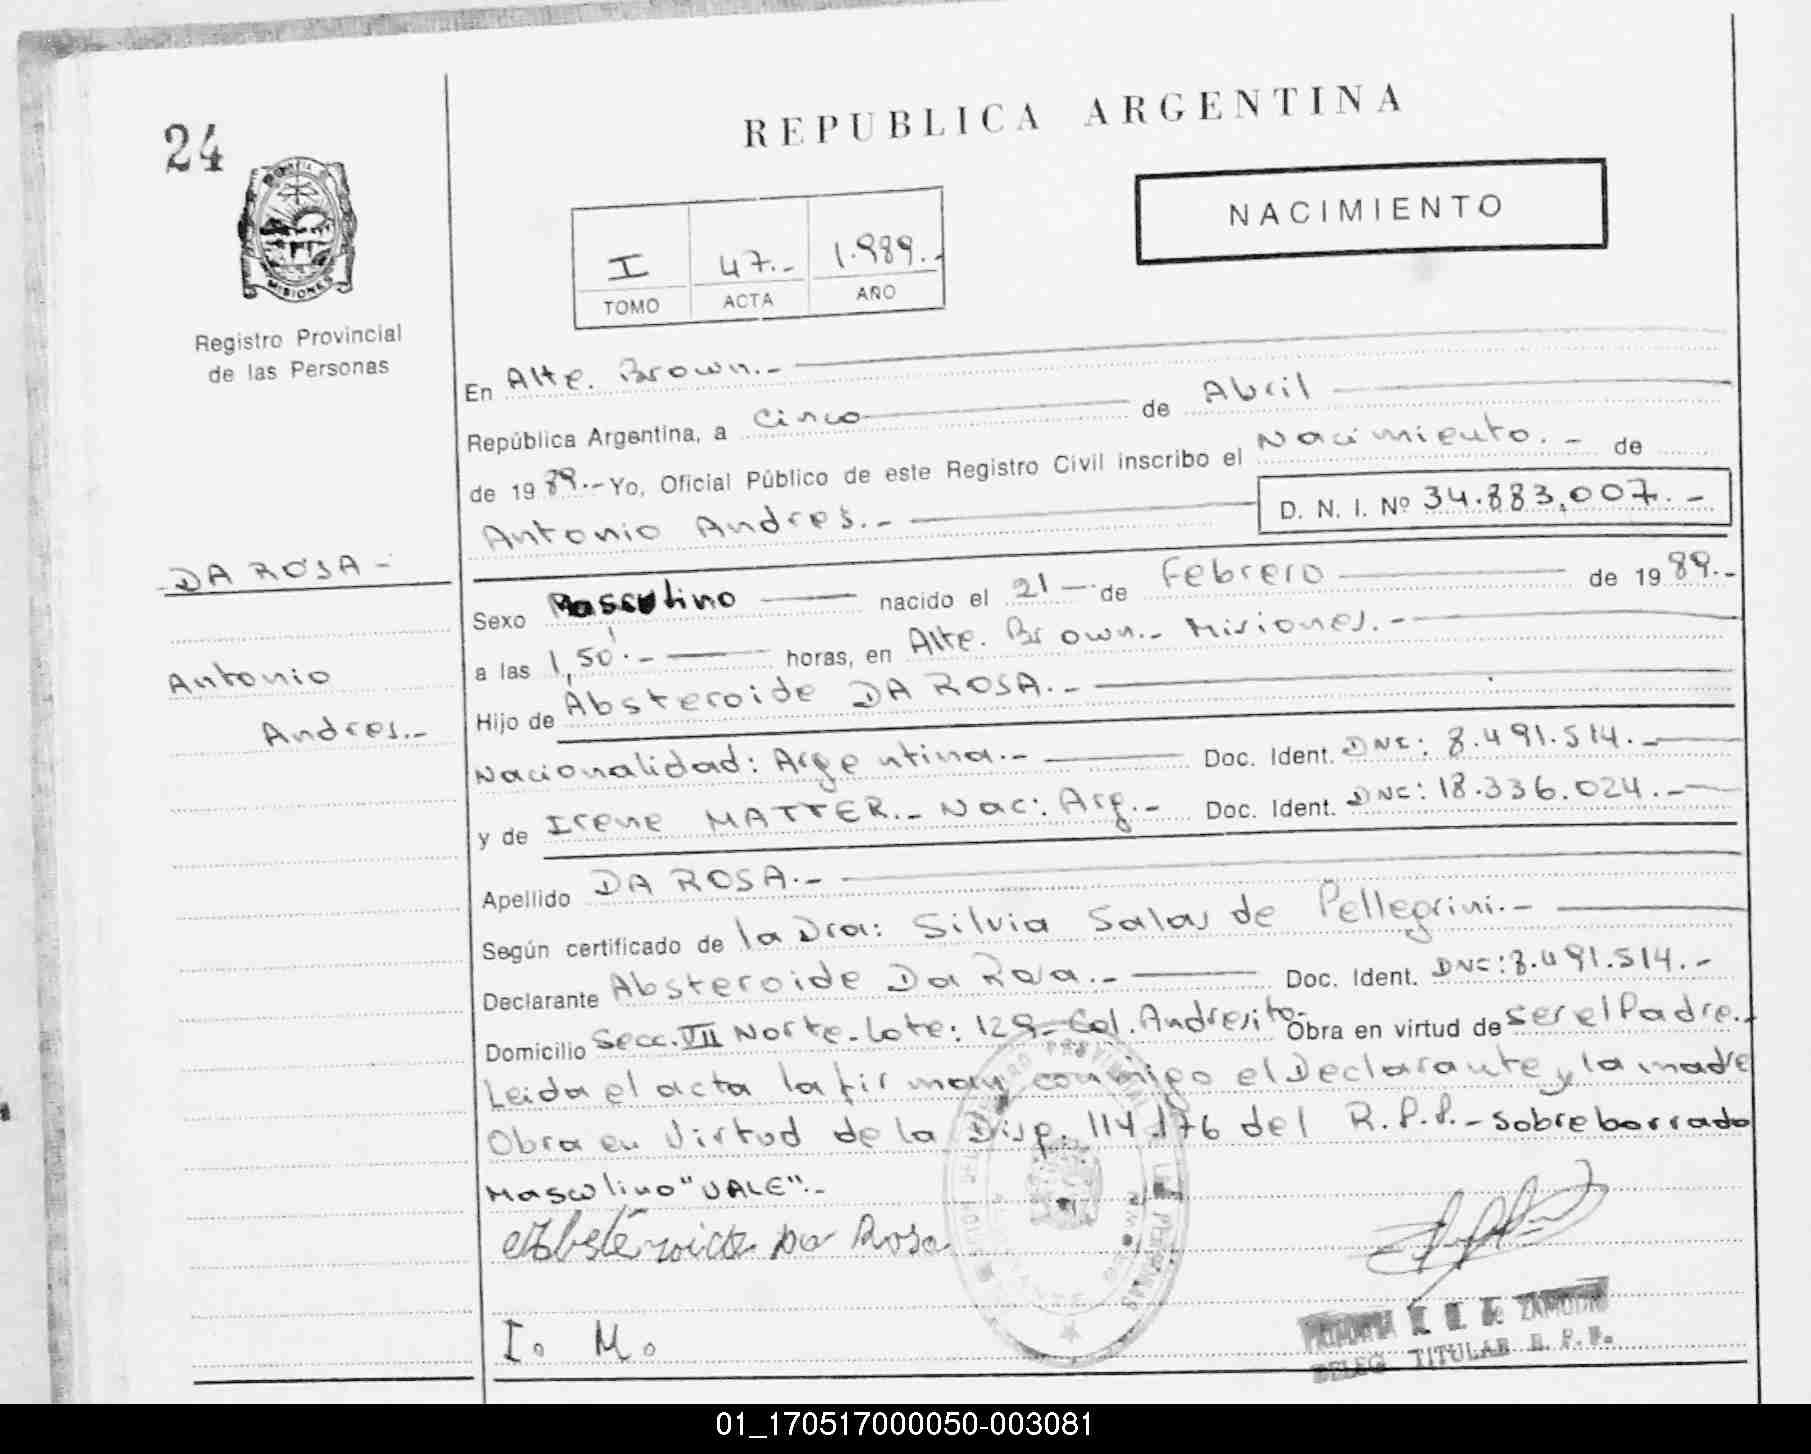 24
REPUBLICA ARGENTINA
NACIMIENTO
MISIONES
Registro Provincial
de las Personas
I 47.- 1.989.-
TOMO ACTA AÑO
En Alte. Brown.-
República Argentina, a Cinco de Abril
de 1989.- Yo, Oficial Público de este Registro Civil inscribo el Nacimiento.- de
Antonio Andres.- D. N. I. Nº 34.883.007.-
DA ROSA-
Antonio
Andres.-
Sexo Masculino nacido el 21 - de Febrero de 1989.-
a las 1,50.- horas, en Alte. Brown.- Misiones.-
Hijo de Absteroide DA ROSA.-
Nacionalidad: Argentina.- Doc. Ident. DNI: 8.491.514.-
y de Irene MATTER.- Nac: Arg.- Doc. Ident. DNI: 18.336.024.-
Apellido DA ROSA.-
Según certificado de la Dra: Silvia Salas de Pellegrini.-
Declarante Absteroide Da Rosa.- Doc. Ident. DNI: 8.491.514.-
Domicilio Secc. VII Norte-Lote: 129-Col. Andresito. Obra en virtud de ser el Padre.-
Leida el acta la firman conmigo el Declarante y la madre
Obra en Virtud de la Disp. 114/76 del R.P.P.- Sobreborrado
Masculino "VALE".-
Absteroide Da Rosa
I. M.
DELEG TITULAR R. P. P.
01_170517000050-003081